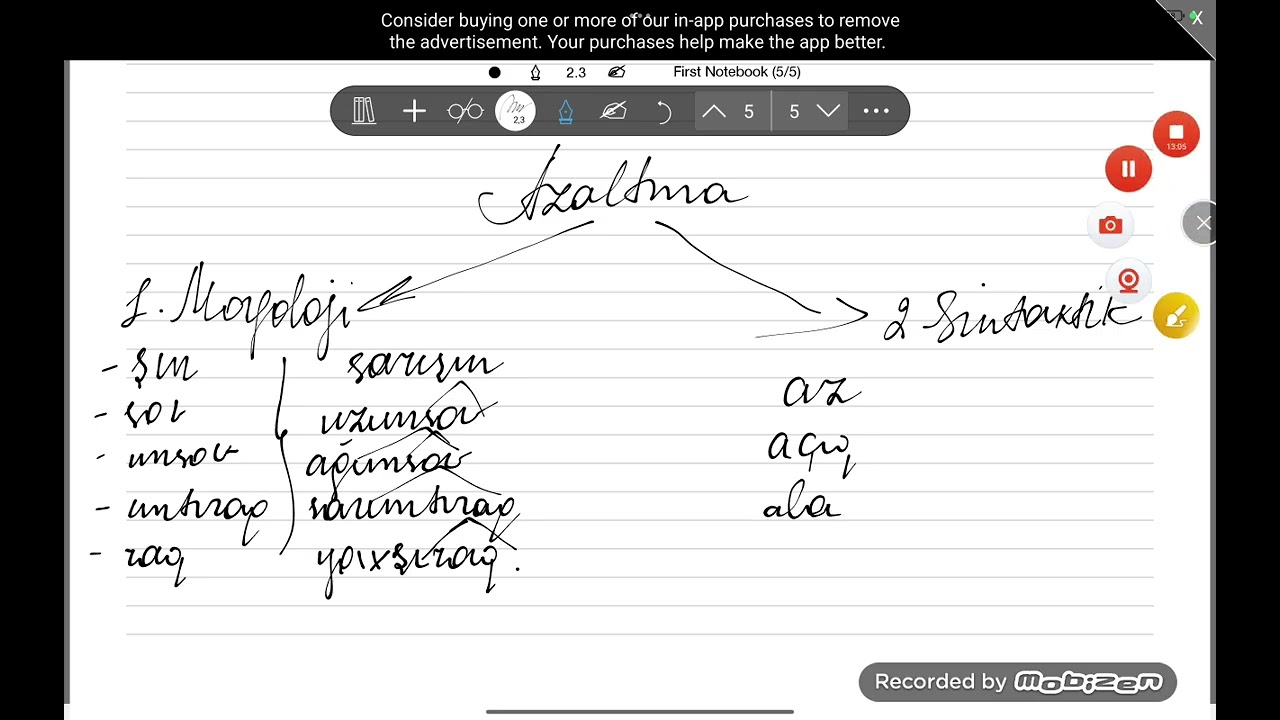 Consider buying one or more of our in-app purchases to remove
the advertisement. Your purchases help make the app better.
X
2.3 First Notebook (5/5)
2,3 5 5
13:05
Azaltma
1. Morfoloji
2 Sintaktik
- şın sarışın
- sov uzunsov
- ımsov ağımsov
- ımtraq sarımtraq
- raq yaxşıraq.
az
açıq
ala
Recorded by mobizen